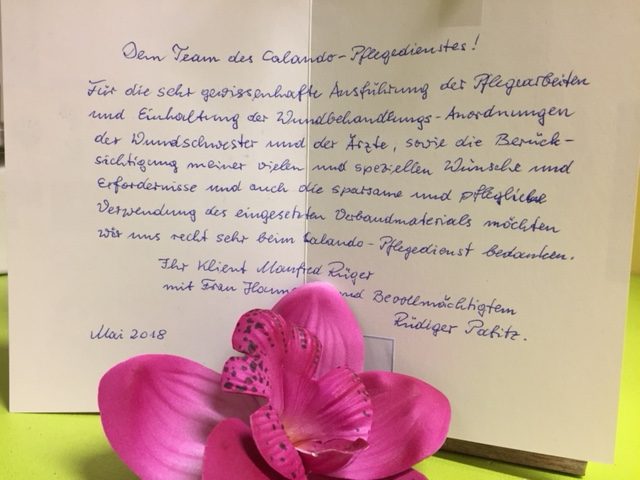 Dem Team des Calando-Pflegedienstes!
Für die sehr gewissenhafte Ausführung der Pflegearbeiten
und Einhaltung der Wundbehandlungs-Anordnungen
der Wundschwester und der Ärzte, sowie die Berück-
sichtigung meiner vielen und speziellen Wünsche und
Erfordernisse und auch die sparsame und pflegliche
Verwendung des eingesetzten Verbandmaterials möchten
wir uns recht sehr beim Calando-Pflegedienst bedanken.
Ihr Klient Manfred Rüger
mit Frau und Bevollmächtigtem
Rüdiger Pabitz.
Mai 2018